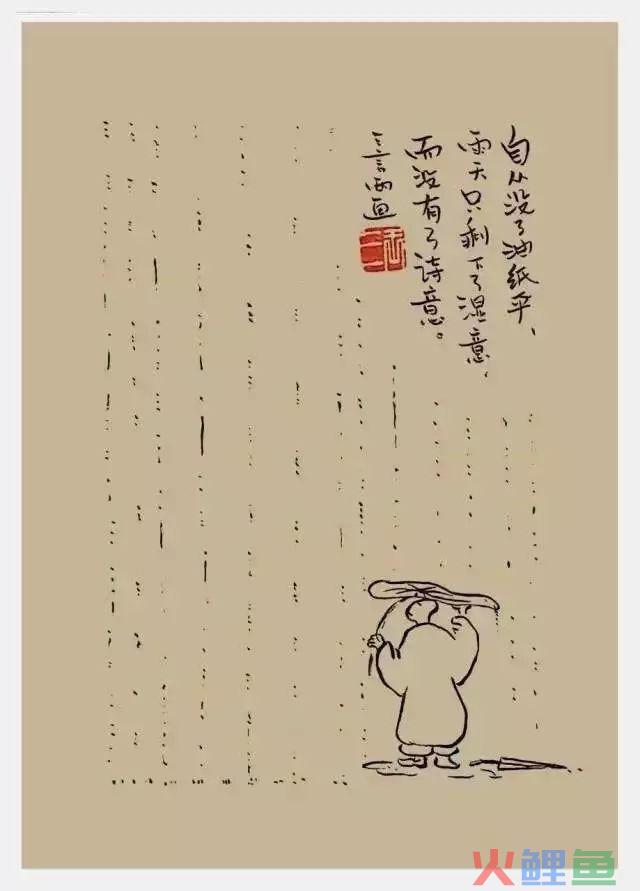 自从没了油纸伞、
雨天只剩下了湿意、
而没有了诗意。
火鲤鱼